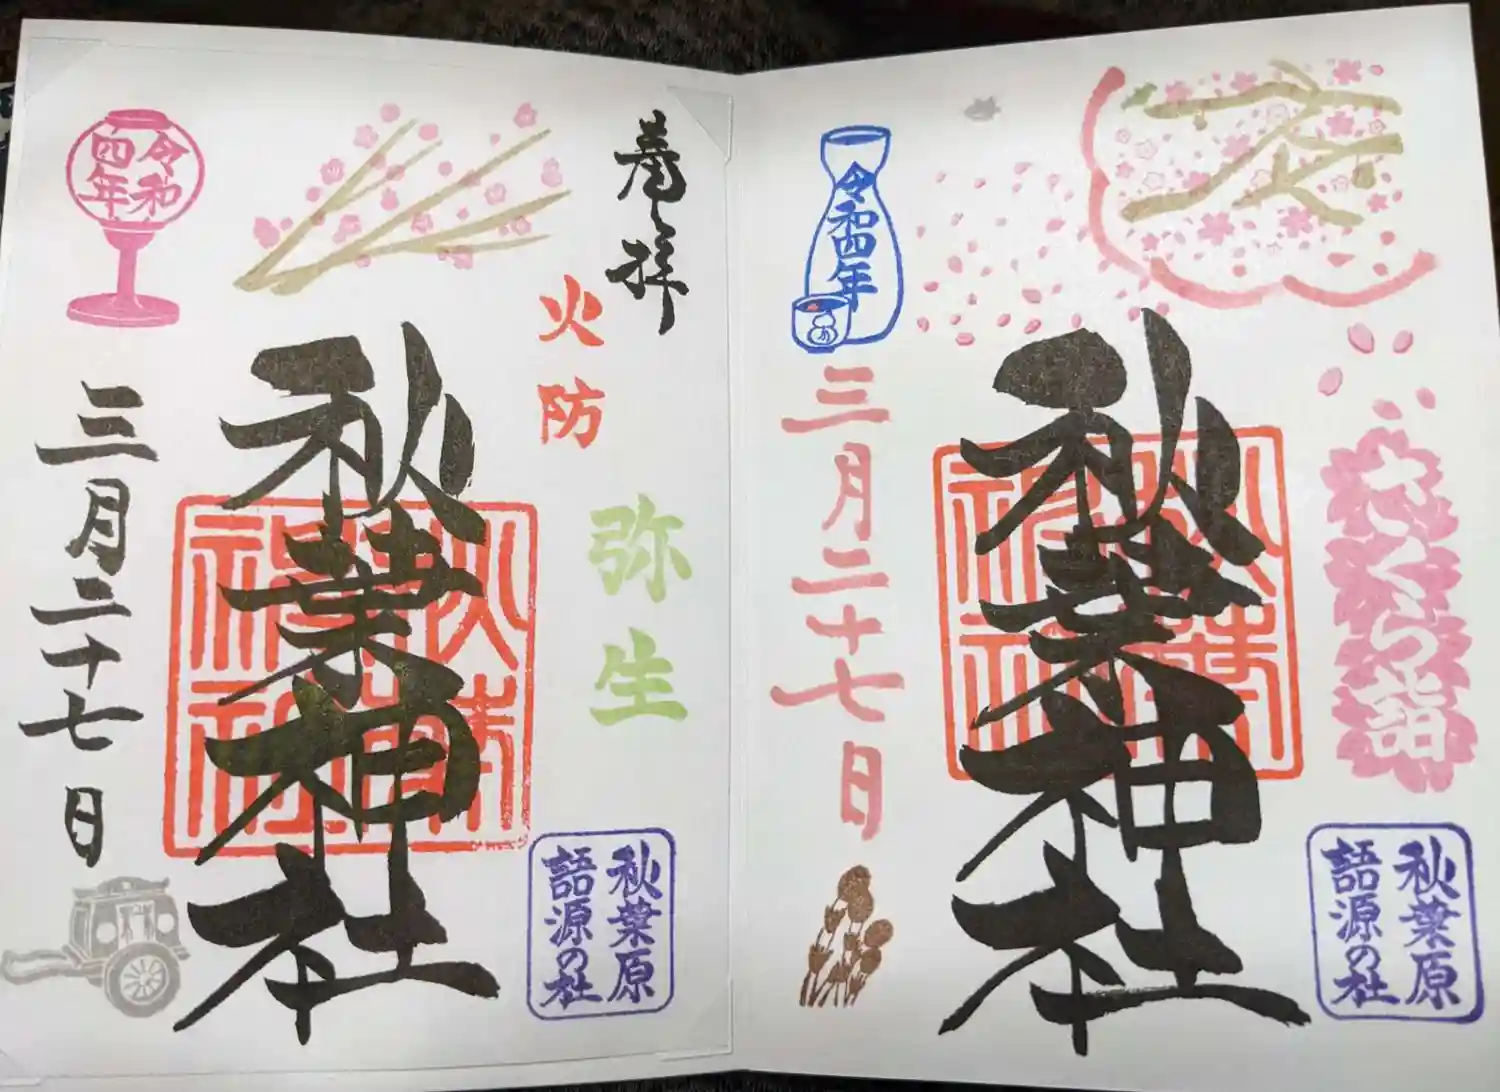 さくら詣
秋葉原
語源の杜
秋葉神社
秋葉
神社
令和四年
三月二十七日
奉拝
火防
弥生
秋葉原
語源の杜
秋葉神社
秋葉
神社
令和
四年
三月二十七日